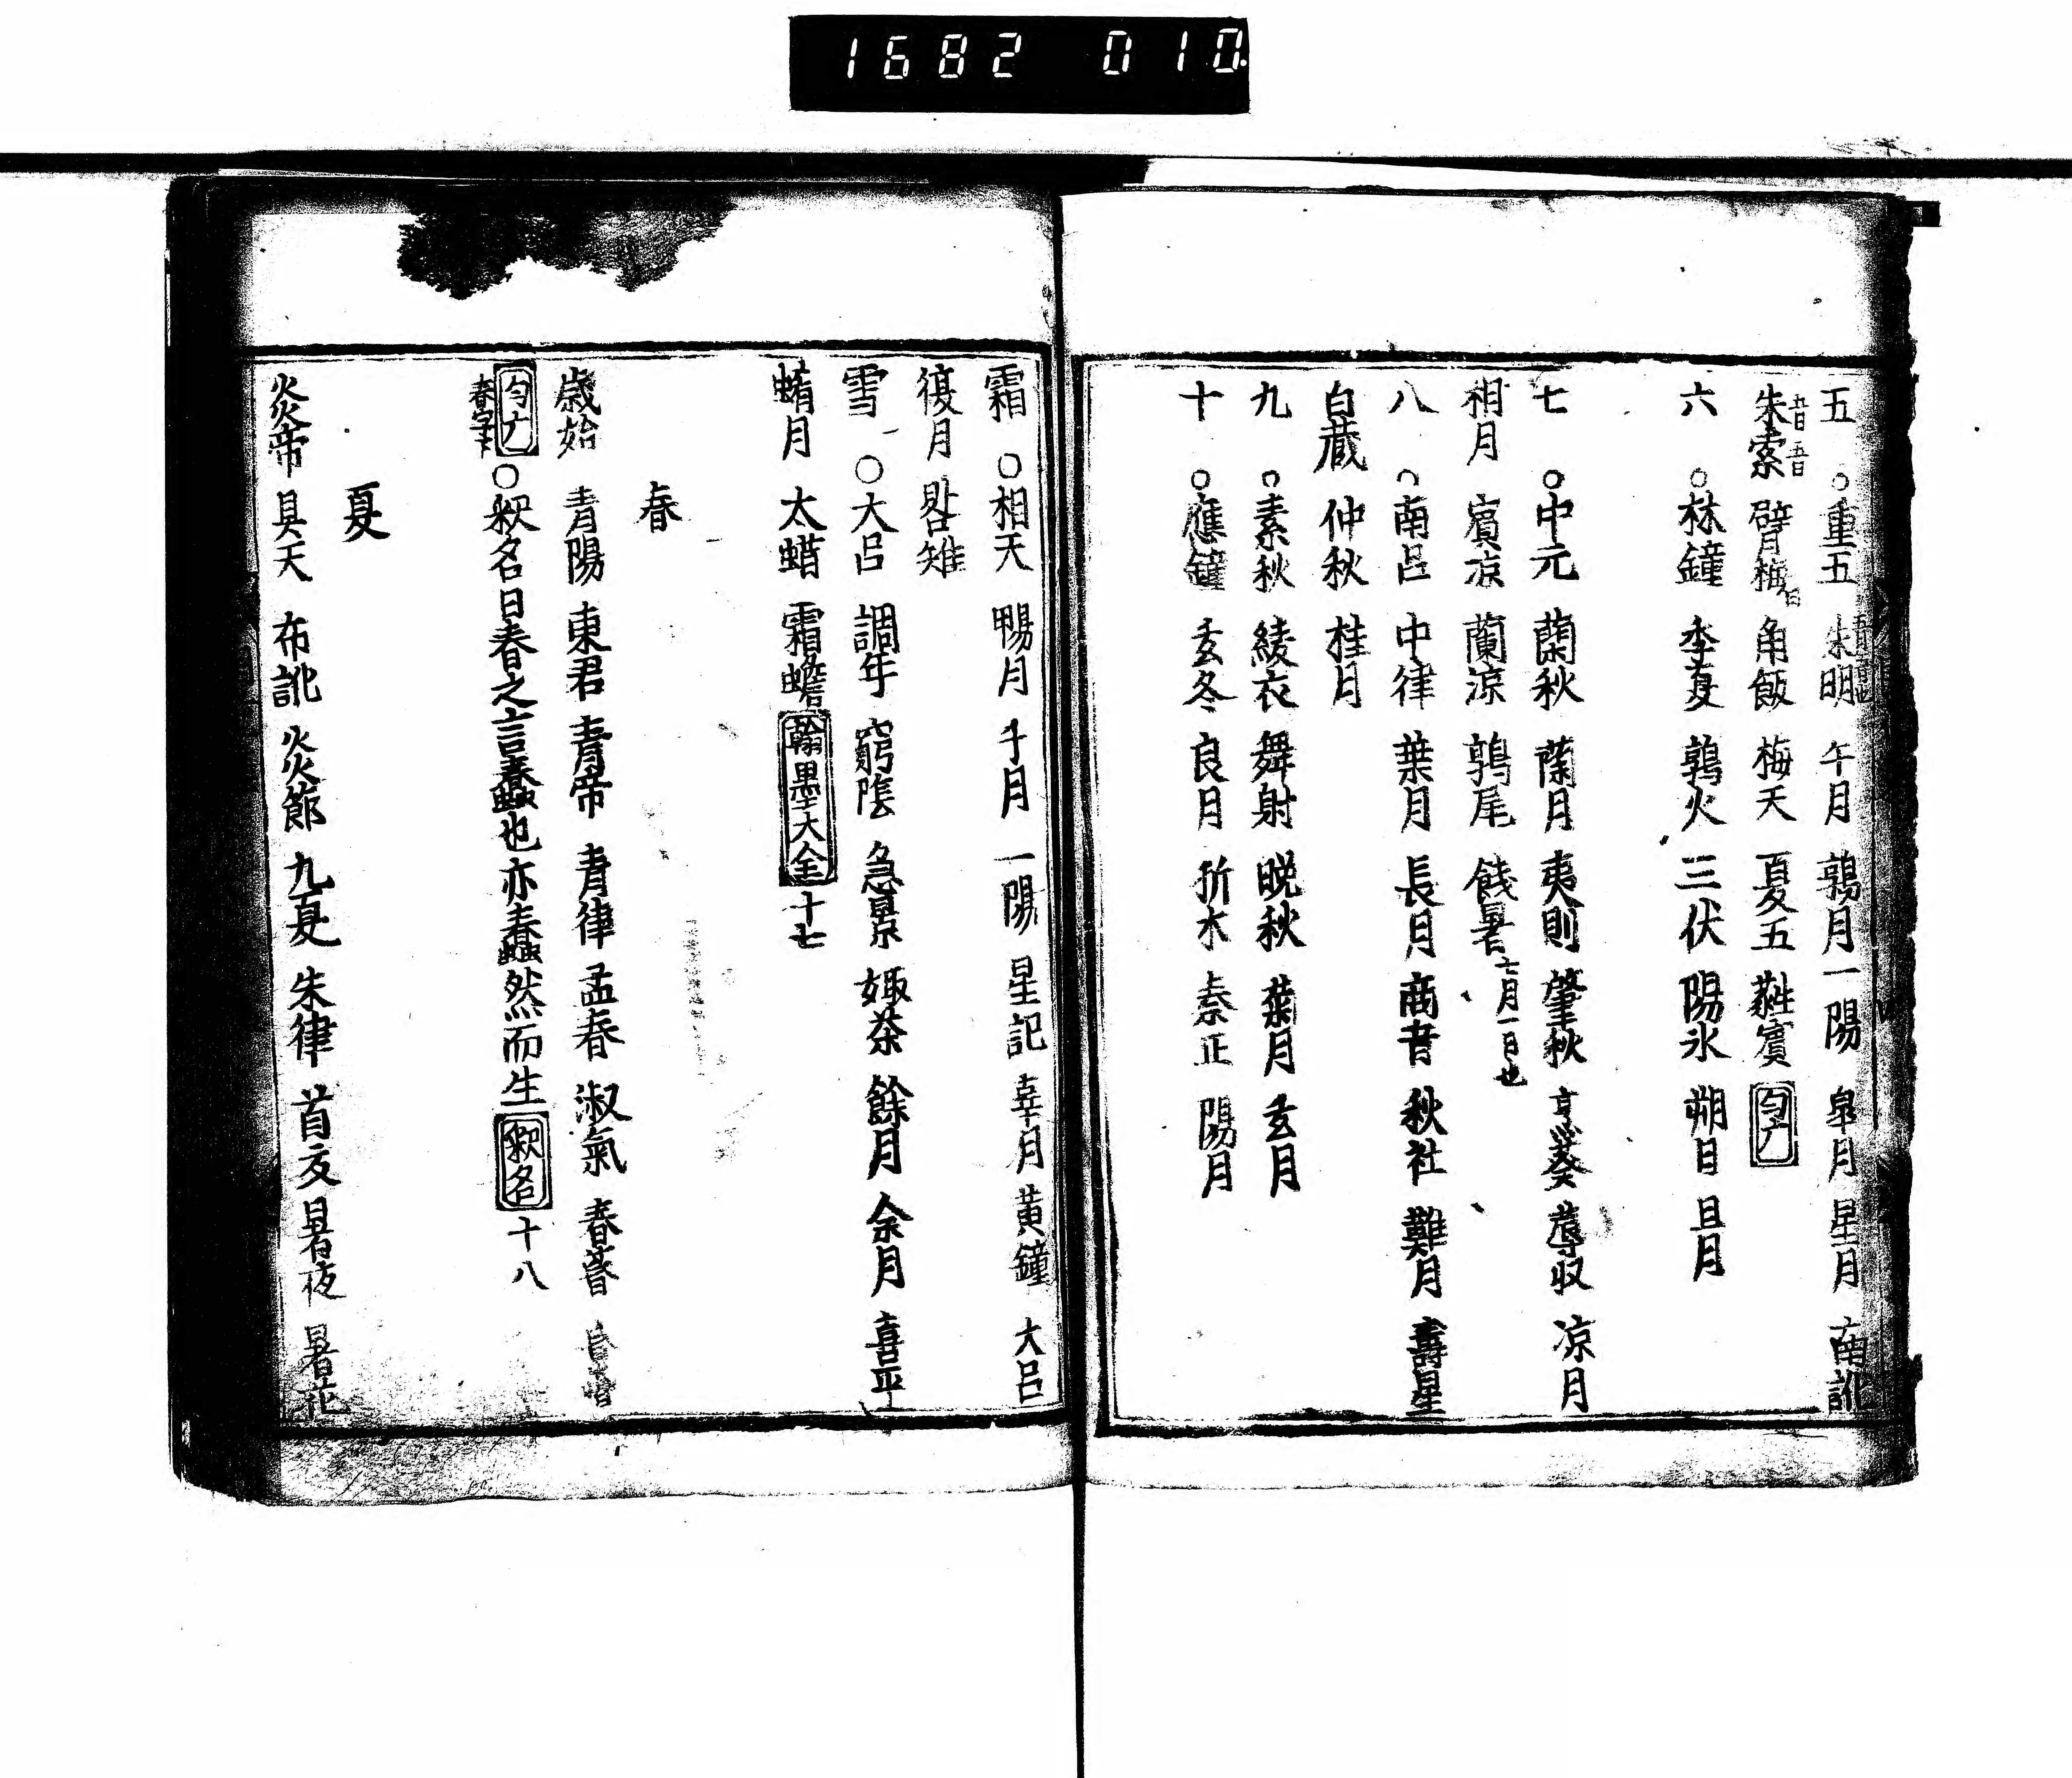 1682 010
五 ○重五 朱明 午月 鶉月 一陽 皐月 星月 南訛
朱索 臂 角飯 梅天 夏五 蕤賓 匀廣
六 ○林鐘 季夏 鶉火 三伏 陽氷 朔日 且月
七 ○中元 蘭秋 蘭月 夷則 肇秋 亨葵 蓐収 凉月
相月 賓凉 蘭涼 鶉尾 餞暑 七月一日也
八 ○南呂 中律 葉月 長月 商音 秋社 難月 壽星
白蔵 仲秋 桂月
九 ○素秋 綾衣 舞射 晩秋 菊月 玄月
十 ○應鐘 玄冬 良月 折木 秦正 陽月
霜 ○相天 暢月 子月 一陽 星記 辜月 黄鐘 大呂
復月 雉
雪 ○大呂 調年 窮陰 急景 娵荼 餘月 余月 喜平
蜡月 太蜡 霜蟾 翰墨大全 十七
春
歳始 青陽 東君 青帝 青律 孟春 淑氣 春
匀廣 春字下 ○釈名曰春之言蠢也亦蠢然而生 釈名 十八
夏
炎帝 具天 布訛 炎節 九夏 朱律 首夏 暑夜 暑花